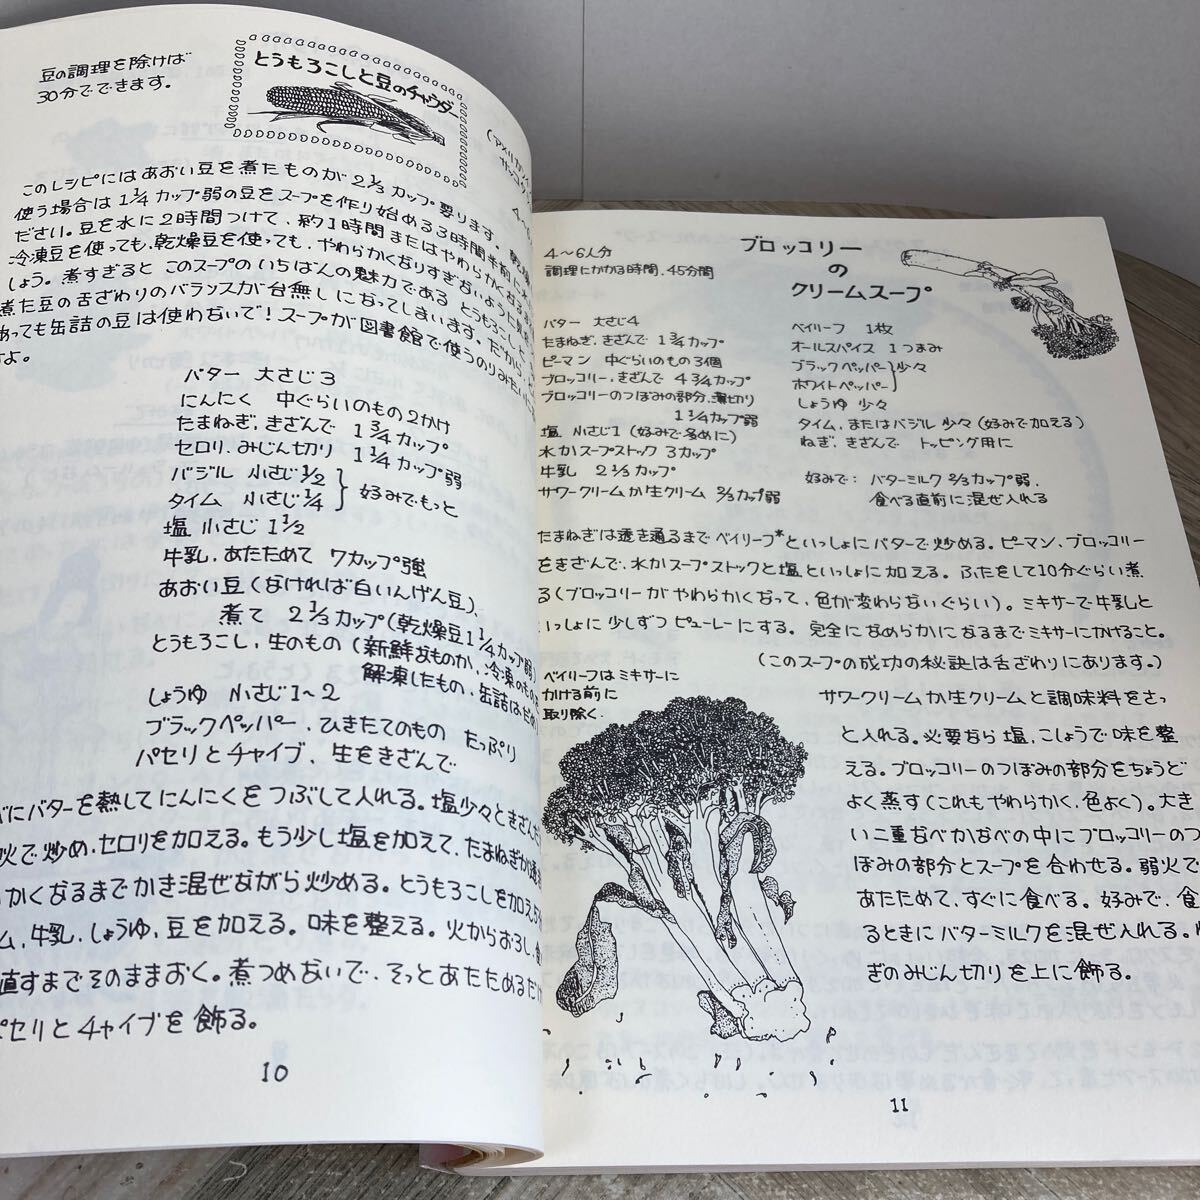 豆の調理を除けば
30分でできます。
とうもろこしと豆のチャウダー
このレシピにはあおい豆を煮たものが2 1/3カップ要ります。
使う場合は1 1/4カップ弱の豆をスープを作り始める3時間半前に水
ださい。豆を水に2時間つけて、約1時間またはやわらかくなる
冷凍豆を使っても、乾燥豆を使っても、やわらかくなりすぎないように
しょう。煮すぎると このスープのいちばんの魅力である とうもろこしと
煮た豆の舌ざわりのバランスが台無しになってしまいます。だから、
あっても缶詰の豆は使わないで!スープが図書館で使うのりみたい
すよ。
バター 大さじ3
にんにく 中ぐらいのもの2かけ
たまねぎ、きざんで 1 3/4カップ
セロリ、みじん切り 1 1/4カップ弱
バジル 小さじ1/2
タイム 小さじ1/4 } 好みでもっと
塩 小さじ1 1/2
牛乳、あたためて 7カップ強
あおい豆(なければ白いんげん豆)、
煮て 2 1/3カップ(乾燥豆1 1/4カップ弱)
とうもろこし、生のもの(新鮮なものか、冷凍のもの
解凍したもの、缶詰はだめ
しょうゆ 小さじ1〜2
ブラックペッパー、ひきたてのもの たっぷり
パセリとチャイブ、生をきざんで
にバターを熱してにんにくをつぶして入れる。塩少々ときざんだ
火で炒め、セロリを加える。もう少し塩を加えて、たまねぎが
かくなるまでかき混ぜながら炒める。とうもろこしを加え
ム、牛乳、しょうゆ、豆を加える。味を整える。火からおろし、
直すまでそのままおく。煮つめないで、そっとあたためるだけ
パセリとチャイブを飾る。
10
ブロッコリー
の
クリームスープ
4〜6人分
調理にかかる時間、45分間
バター 大さじ4
たまねぎ、きざんで 1 3/4カップ
ピーマン 中ぐらいのもの3個
ブロッコリー、きざんで 4 3/4カップ
ブロッコリーのつぼみの部分、薄切り
1 1/4カップ弱
塩 小さじ1(好みで多めに)
水かスープストック 3カップ
牛乳 2 1/3カップ
サワークリームか生クリーム 2/3カップ弱
ベイリーフ 1枚
オールスパイス 1つまみ
ブラックペッパー
ホワイトペッパー } 少々
しょうゆ 少々
タイム、またはバジル 少々(好みで加える)
ねぎ、きざんで トッピング用に
好みで: バターミルク 2/3カップ弱、
食べる直前に混ぜ入れる
たまねぎは透き通るまで ベイリーフ*といっしょにバターで炒める。ピーマン、ブロッコリー
をきざんで、水かスープストックと塩といっしょに加える。ふたをして10分ぐらい煮
る(ブロッコリーがやわらかくなって、色が変わらないぐらい)。ミキサーで牛乳と
いっしょに少しずつピューレーにする。完全になめらかになるまでミキサーにかけること。
(このスープの成功の秘訣は舌ざわりにあります。)
ベイリーフはミキサーに
かける前に
取り除く.
サワークリームか生クリームと調味料をさっ
と入れる。必要なら塩、こしょうで味を整
える。ブロッコリーのつぼみの部分をちょうど
よく蒸す(これもやわらかく、色よく)。大き
い二重なべかなべの中にブロッコリーのつ
ぼみの部分とスープを合わせる。弱火で
あたためて、すぐに食べる。好みで、食
るときにバターミルクを混ぜ入れる。
ぎのみじん切りを上に飾る。
11